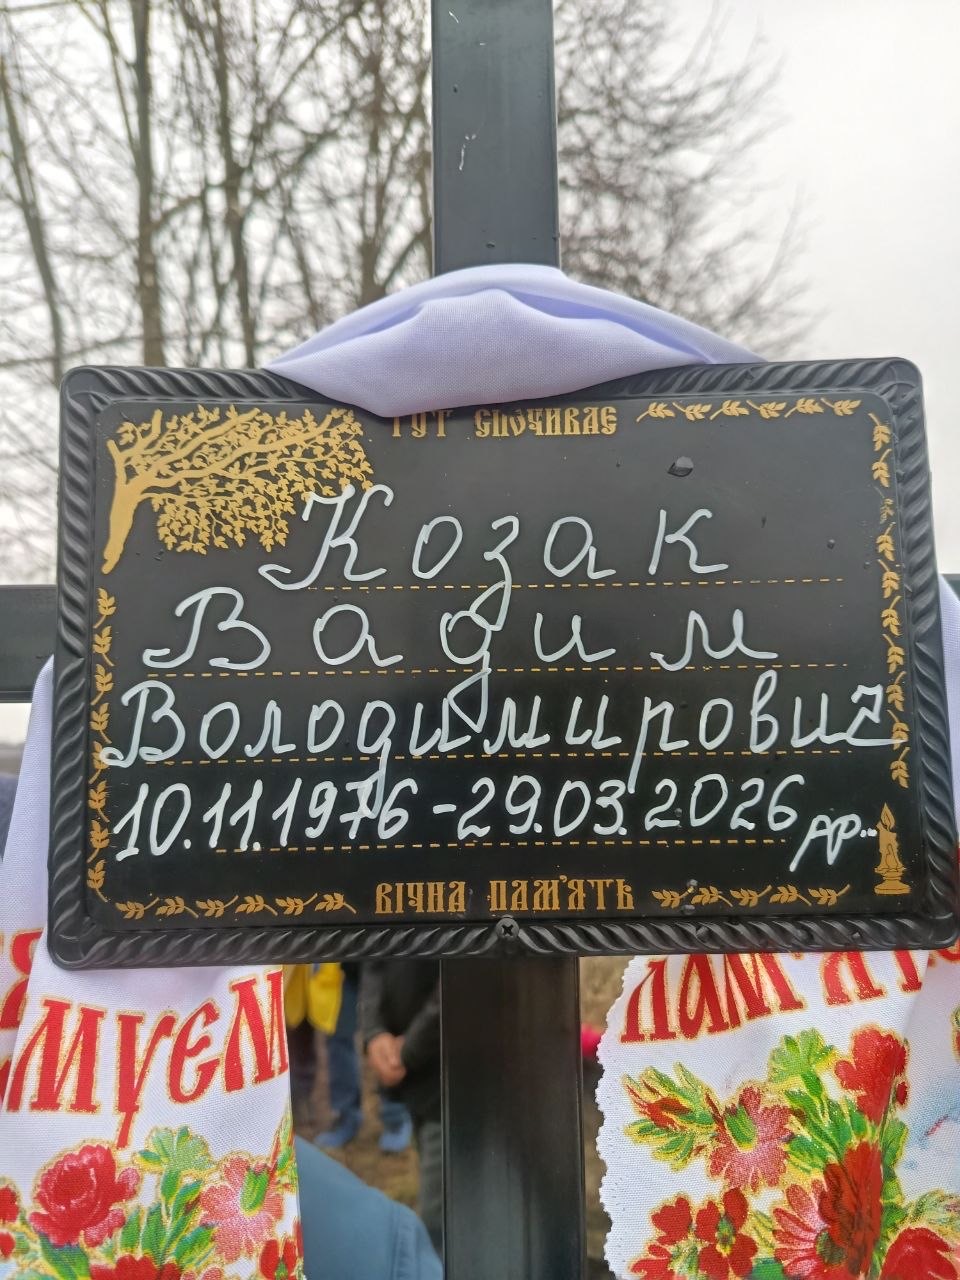 ТУТ СПОЧИВАЄ
Козак
Вадим
Володимирович
10.11.1976-29.03.2026 рр..
ВІЧНА ПАМ'ЯТЬ